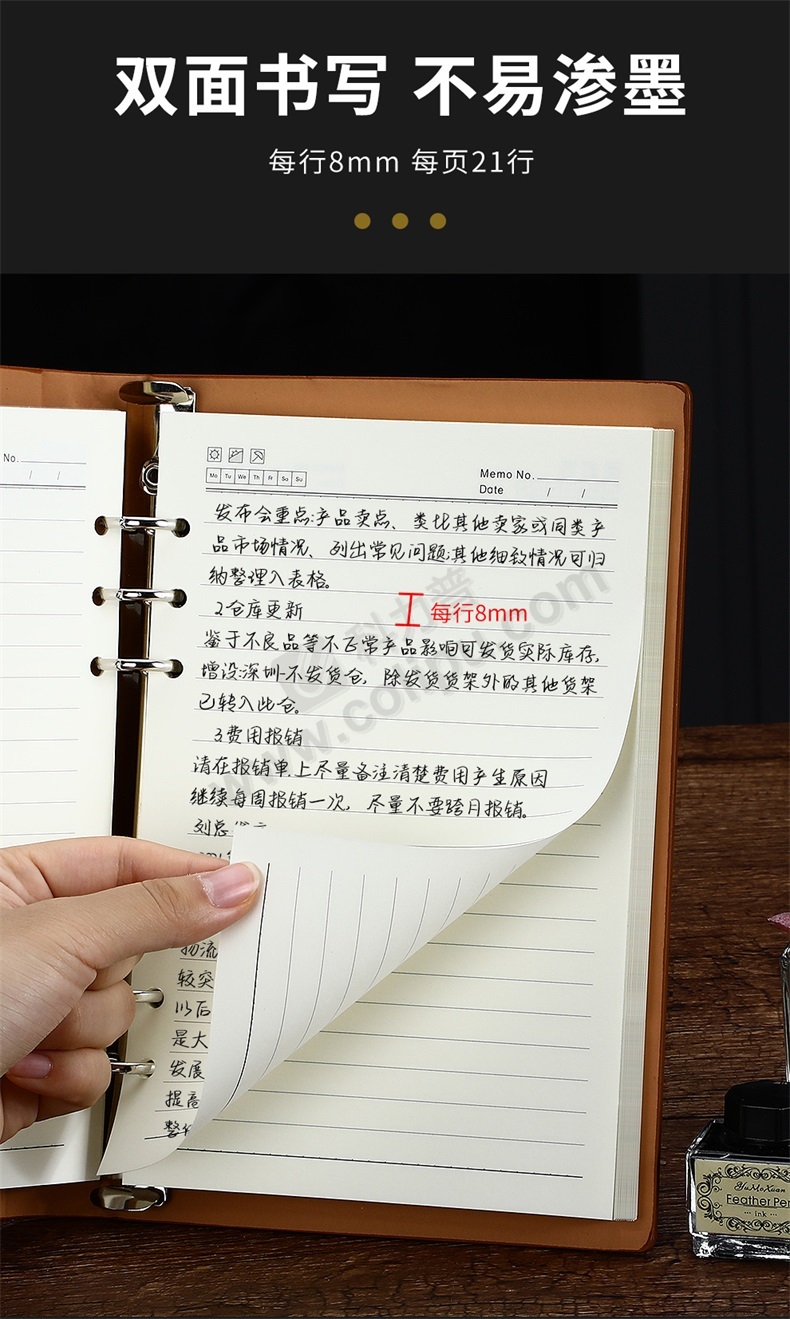 双面书写 不易渗墨
每行8mm 每页21行
No.
/ /
Mo Tu We Th Fr Sa Su
Memo No.
Date / /
发布会重点:产品卖点、类比其他卖家或同类产
品市场情况、列出常见问题其他细致情况可归
纳整理入表格。
2仓库更新
每行8mm
鉴于不良品等不正常产品影响可发货实际库存,
增设深圳-不发货仓,除发货货架外的其他货架
已转入此仓。
3.费用报销
请在报销单上尽量备注清楚费用产生原因
继续每周报销一次,尽量不要跨月报销。
刘总
物流
较突
以后
是大
发展
提高
整
www.colipu.com
YuMoXuan
Feather Pen
Ink